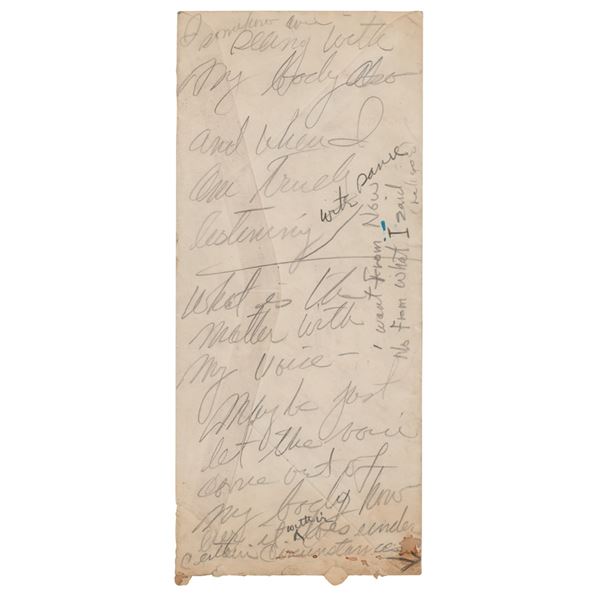 I somehow am
seeing with
My body also
and when I
am truely
listening
with Dance
What is the
matter with
My voice —
Maybe just
let the voice
come out of
my body how
it does under
within
certain circumstances
I want from Now
No From what I said